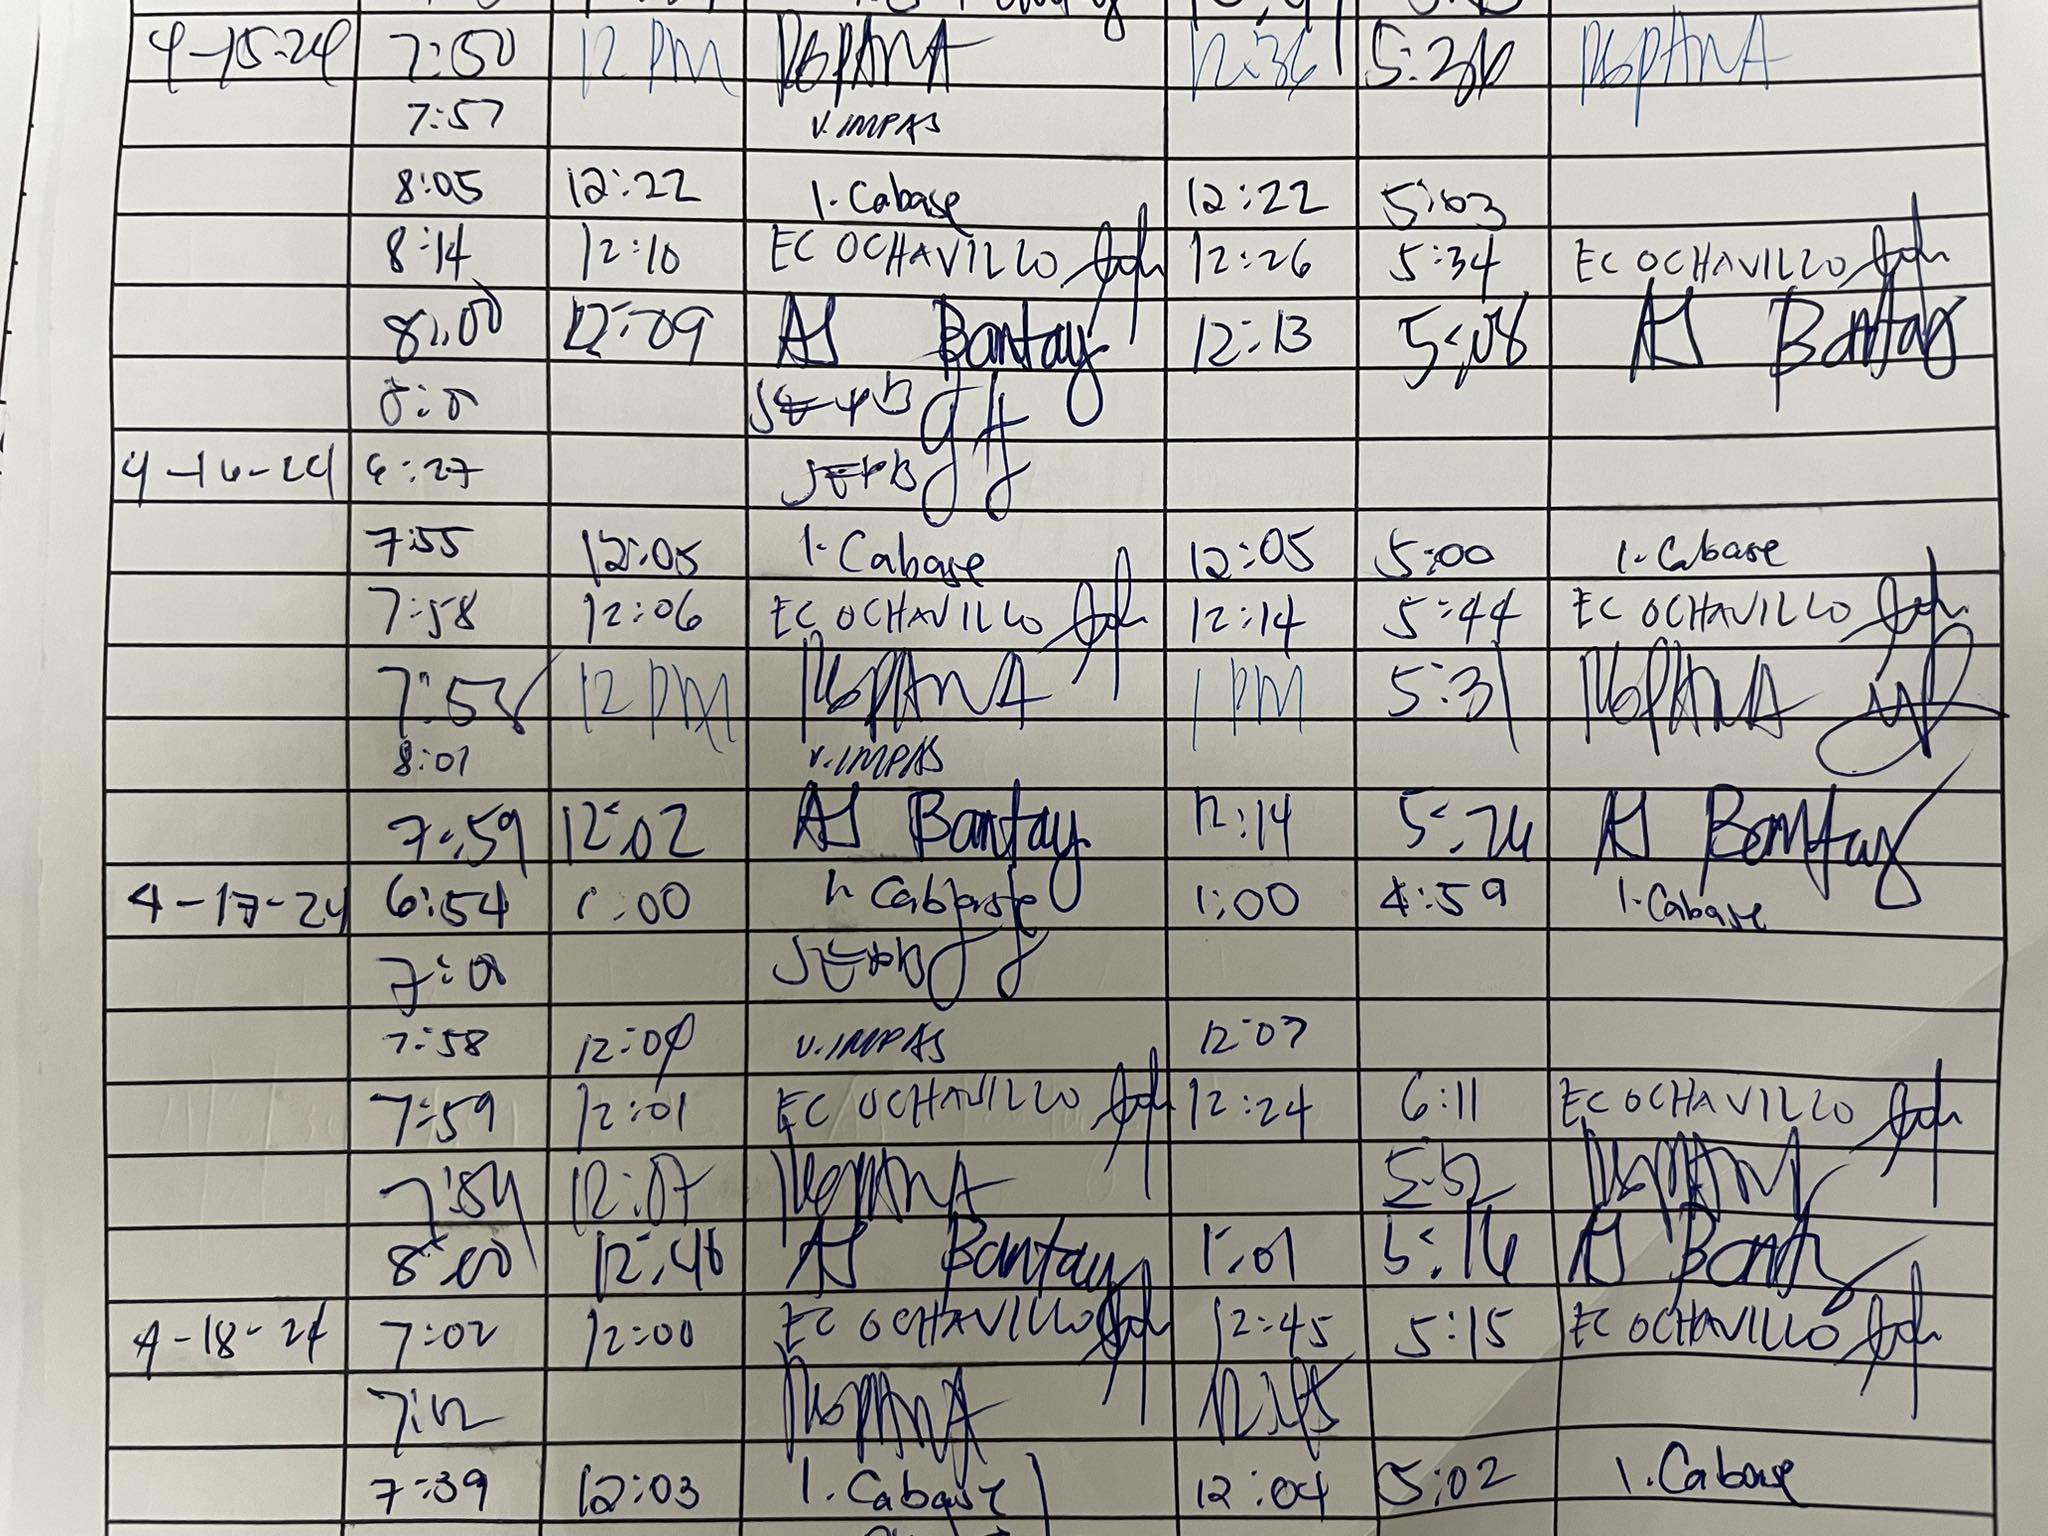 4-15-24 7:50 12 PM 12:36 5:36
7:57 V. IMPAS
8:05 12:22 I. Cabase 12:22 5:03
8:14 12:10 EC OCHAVILLO 12:26 5:34 EC OCHAVILLO
8:00 12:09 AJ Bantay 12:13 5:08 AJ Bantay
4-16-24 6:27
7:55 12:05 I. Cabase 12:05 5:00 I. Cabase
7:58 12:06 EC OCHAVILLO 12:14 5:44 EC OCHAVILLO
7:58 12 PM 1 PM 5:31
8:01 V. IMPAS
7:59 12:02 AJ Bantay 12:14 5:26 AJ Bantay
4-17-24 6:54 1:00 I. Cabase 1:00 4:59 I. Cabase
7:58 V. IMPAS 12:07
7:59 12:01 EC OCHAVILLO 12:24 6:11 EC OCHAVILLO
7:54 12:07 5:52
8:00 12:46 AJ Bantay 1:01 5:16 AJ
4-18-24 7:02 12:00 EC OCHAVILLO 12:45 5:15 EC OCHAVILLO
12:45
7:39 12:03 I. Cabase 12:04 5:02 I. Cabase